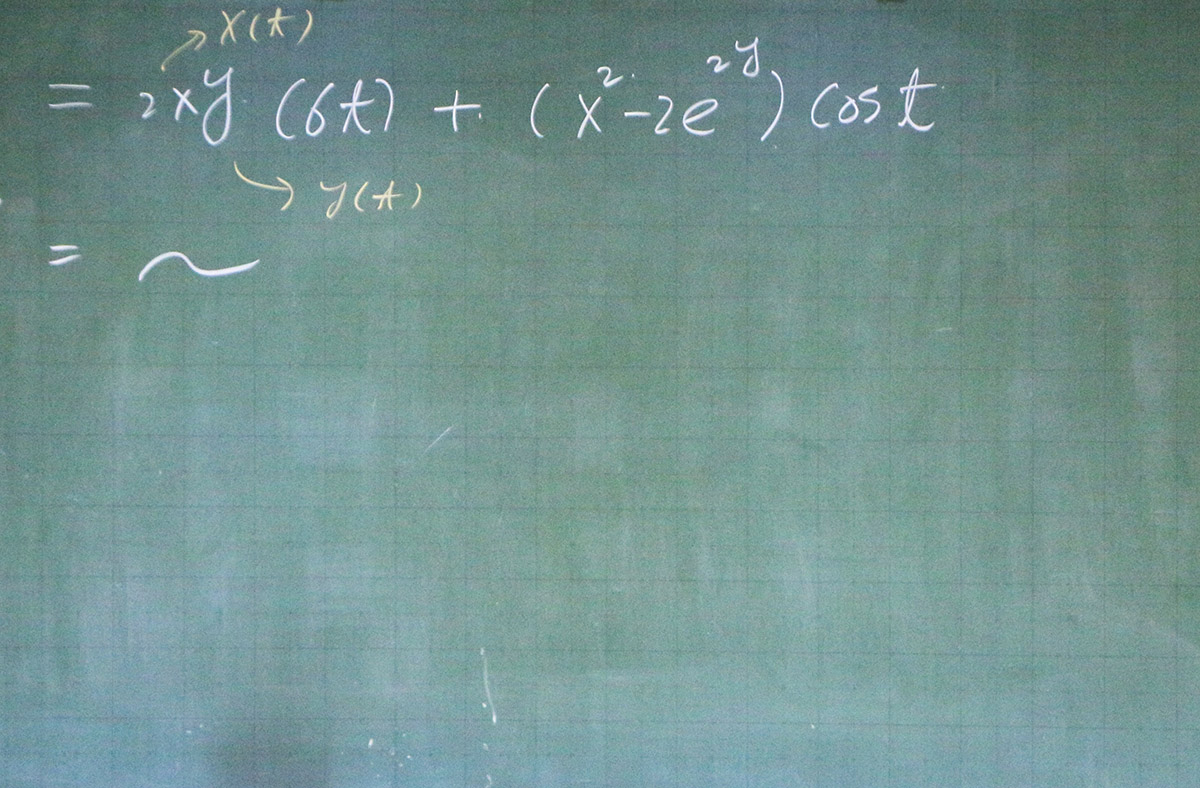 x(t)
= 2xy (6t) + (x² - 2e^{2y}) cos t
y(t)
= ~